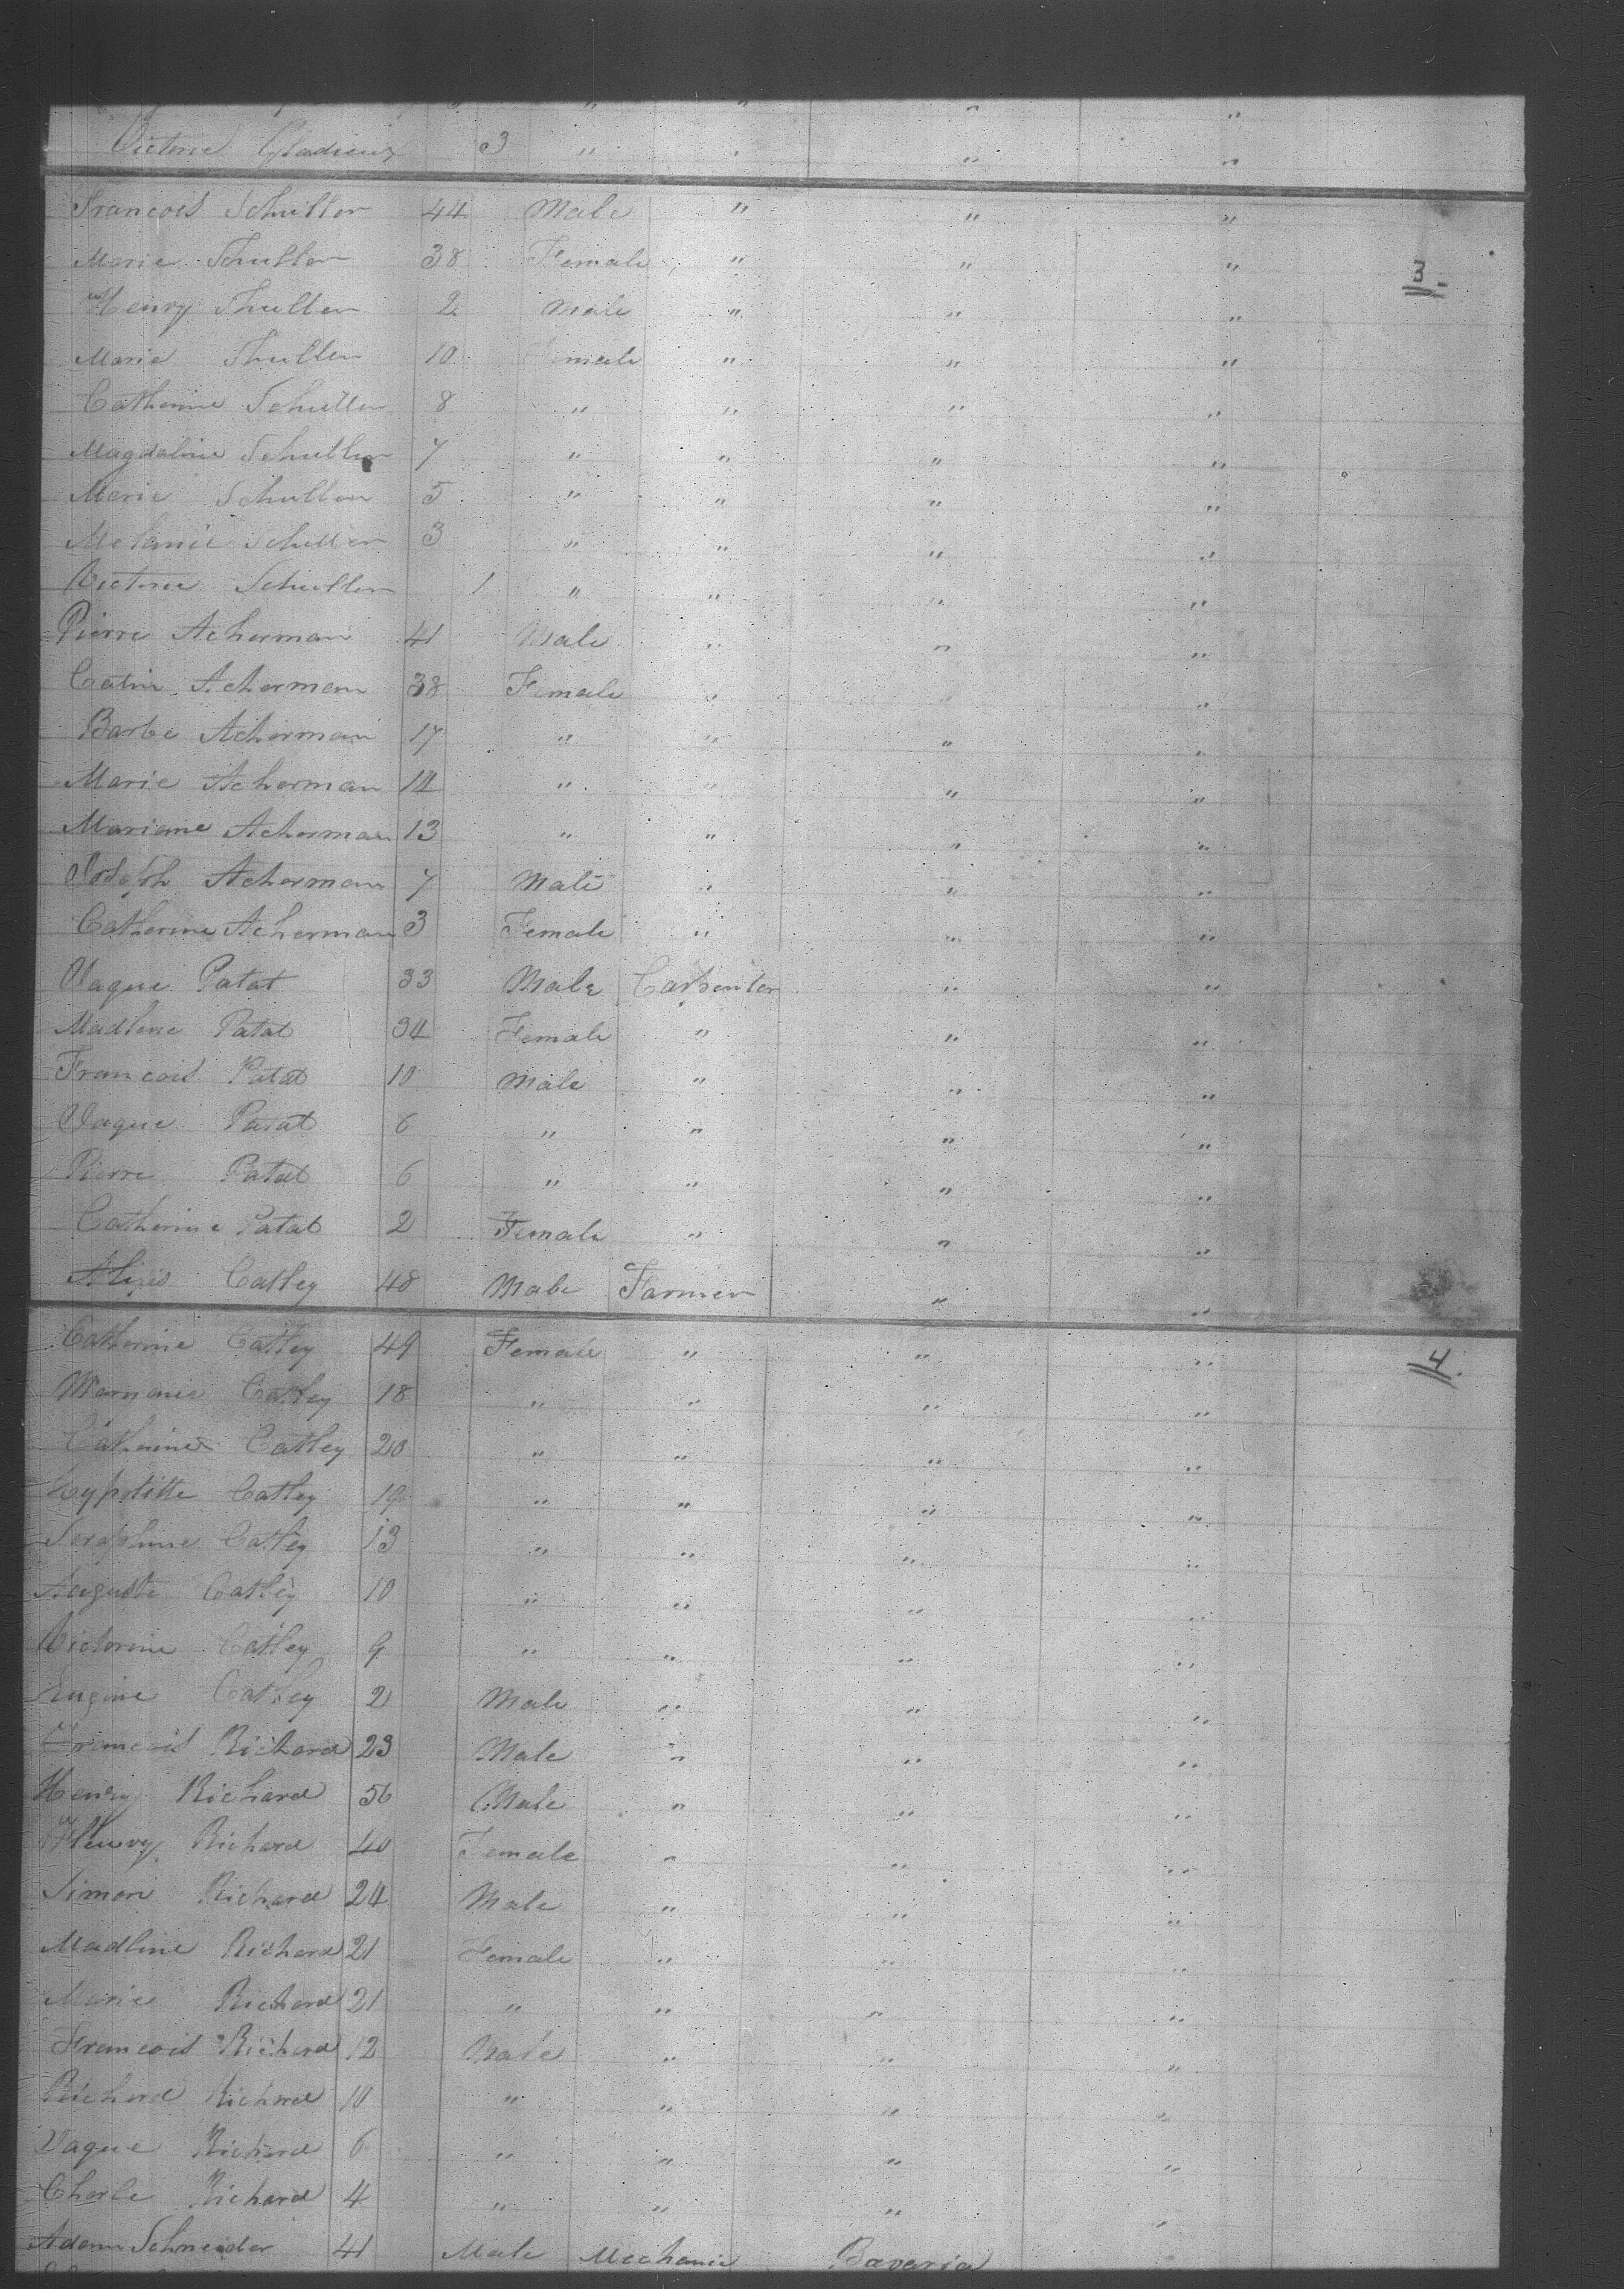 Victorie Gladieux 3 " " " "
Francois Schuller 44 Male " " "
Marie Schuller 38 Female " " " 3
Henry Shuller 2 Male " " "
Marie Shuller 10 Female " " "
Catherine Schuller 8 " " " "
Magdaline Schuller 7 " " " "
Marie Schuller 5 " " " "
Melanie Schuller 3 " " " "
Victorie Schuller 1 " " " "
Pierre Acherman 41 Male " " "
Catin Acherman 38 Female " " "
Barbe Acherman 17 " " " "
Marie Acherman 14 " " " "
Mariane Acherman 13 " " " "
Joseph Acherman 7 Male " " "
Catherine Acherman 3 Female " " "
Jaque Patat 33 Male Carpenter " "
Madlene Patat 34 Female " " "
Francois Patat 10 Male " " "
Jaque Patat 6 " " " "
Pierre Patat 6 " " " "
Catherine Patat 2 Female " " "
Catley 48 Male Farmer " "
Catherine Catley 49 Female " " " 4
Catley 18 " " " "
Catherine Catley 20 " " " "
Catley 19 " " " "
Seraphine Catley 13 " " " "
Auguste Catley 10 " " " "
Victorine Catley 9 " " " "
Eugine Catley 2 Male " " "
Francois Richard 23 Male " " "
Henry Richard 56 Male " " "
Fleury Richard 40 Female " " "
Simon Richard 24 Male " " "
Madline Richard 21 Female " " "
Marie Richard 21 " " " "
Francois Richard 12 Male " " "
Richard Richard 10 " " " "
Jaque Richard 6 " " " "
Charle Richard 4 " " " "
Adam Schneider 41 Male Mechanic Bavaria